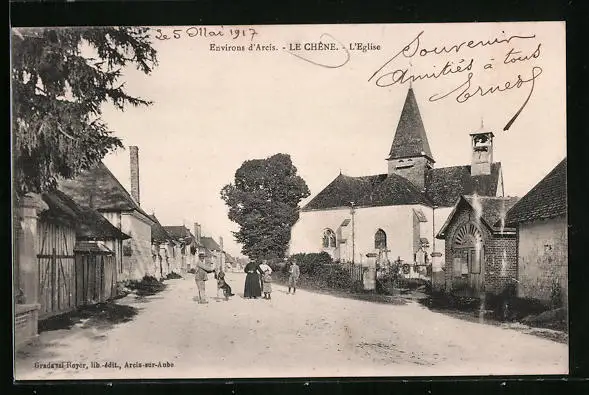 Le 5 Mai 1917
Environs d'Arcis. - LE CHÊNE. - L'Eglise
Souvenir
Amitiés à tous
Ernest
Gradassi-Royer, lib. édit., Arcis-sur-Aube